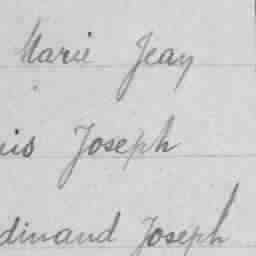 Marie Jeay
uis Joseph
dinand Joseph